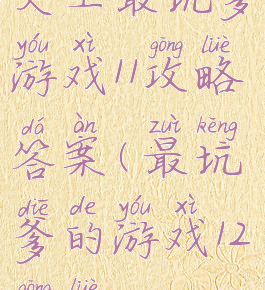 天上最坑爹
yóu xì gōng lüè
游戏11攻略
dá àn zuì kēng
答案(最坑
diē de yóu xì
爹的游戏12
gōng lüè